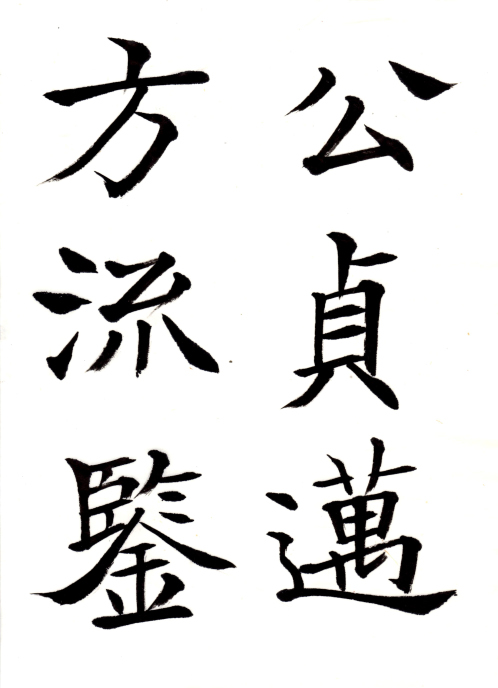 公貞邁
方流鑒